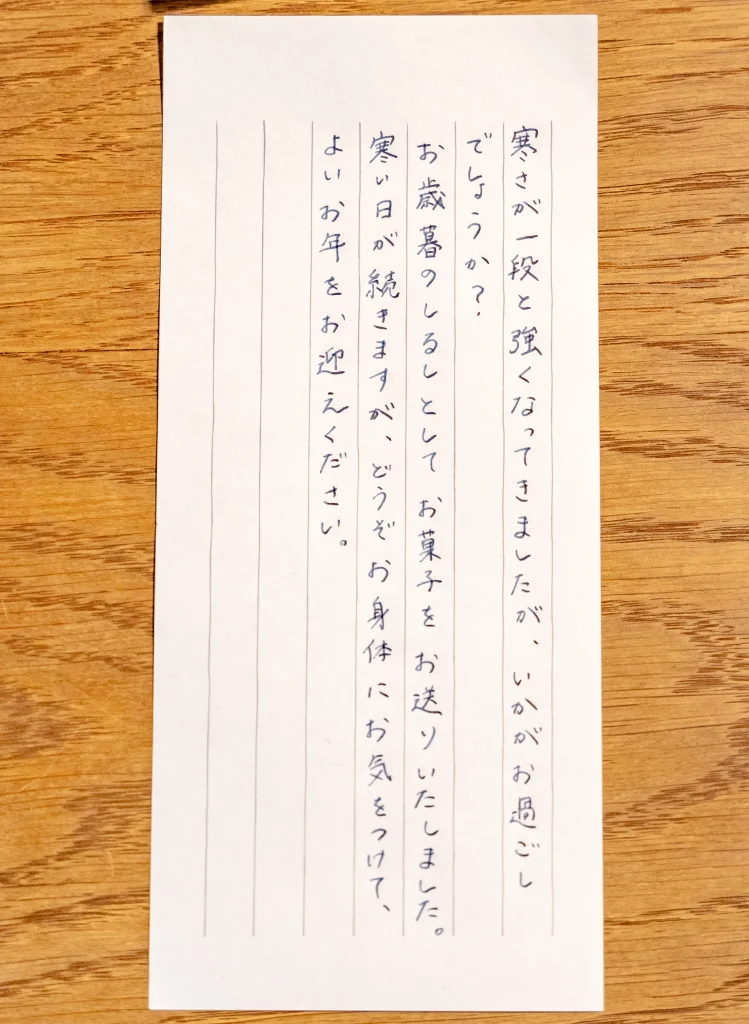 寒さが一段と強くなってきましたが、いかがお過ごし
でしょうか？
お歳暮のしるしとしてお菓子をお送りいたしました。
寒い日が続きますが、どうぞお身体にお気をつけて、
よいお年をお迎えください。